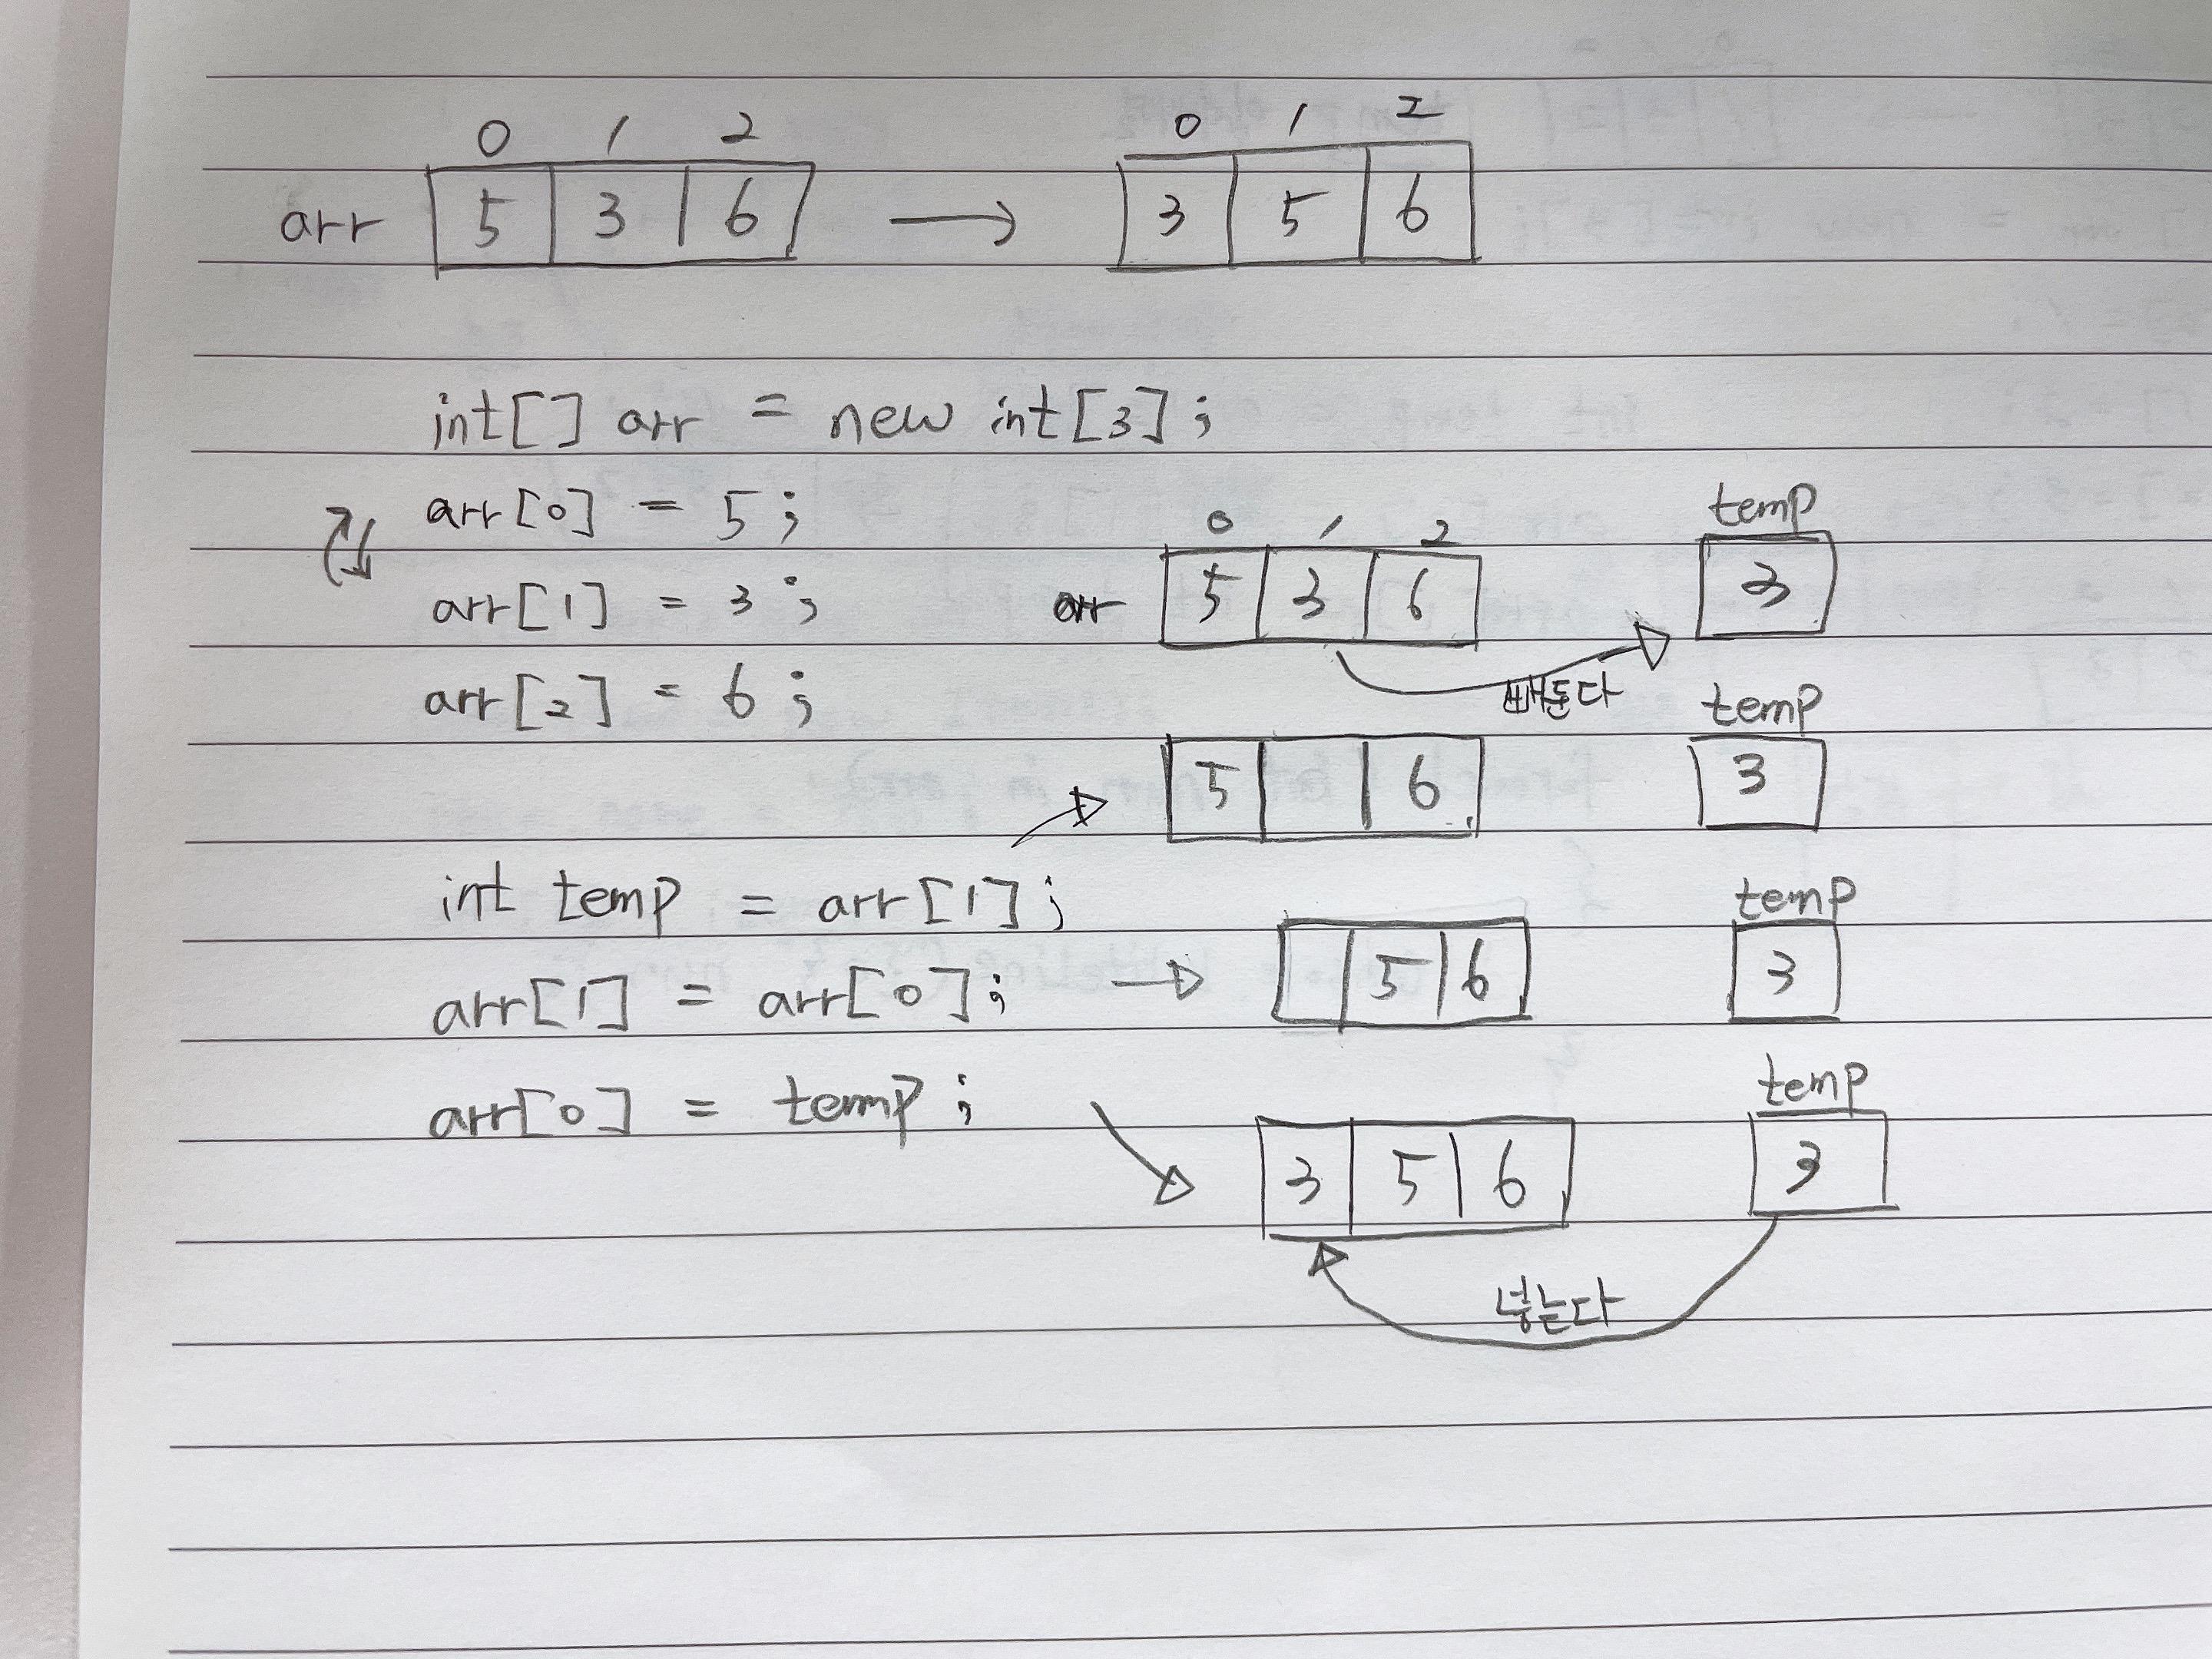 0 1 2
0 1 2
arr 5 3 6 → 3 5 6
int[] arr = new int[3];
arr[0] = 5;
arr[1] = 3;
arr[2] = 6;
temp
0 1 2
arr 5 3 6 3
빼둔다
temp
5 6 3
int temp = arr[1];
temp
arr[1] = arr[0]; → 5 6 3
temp
arr[0] = temp;
3 5 6 3
넣는다